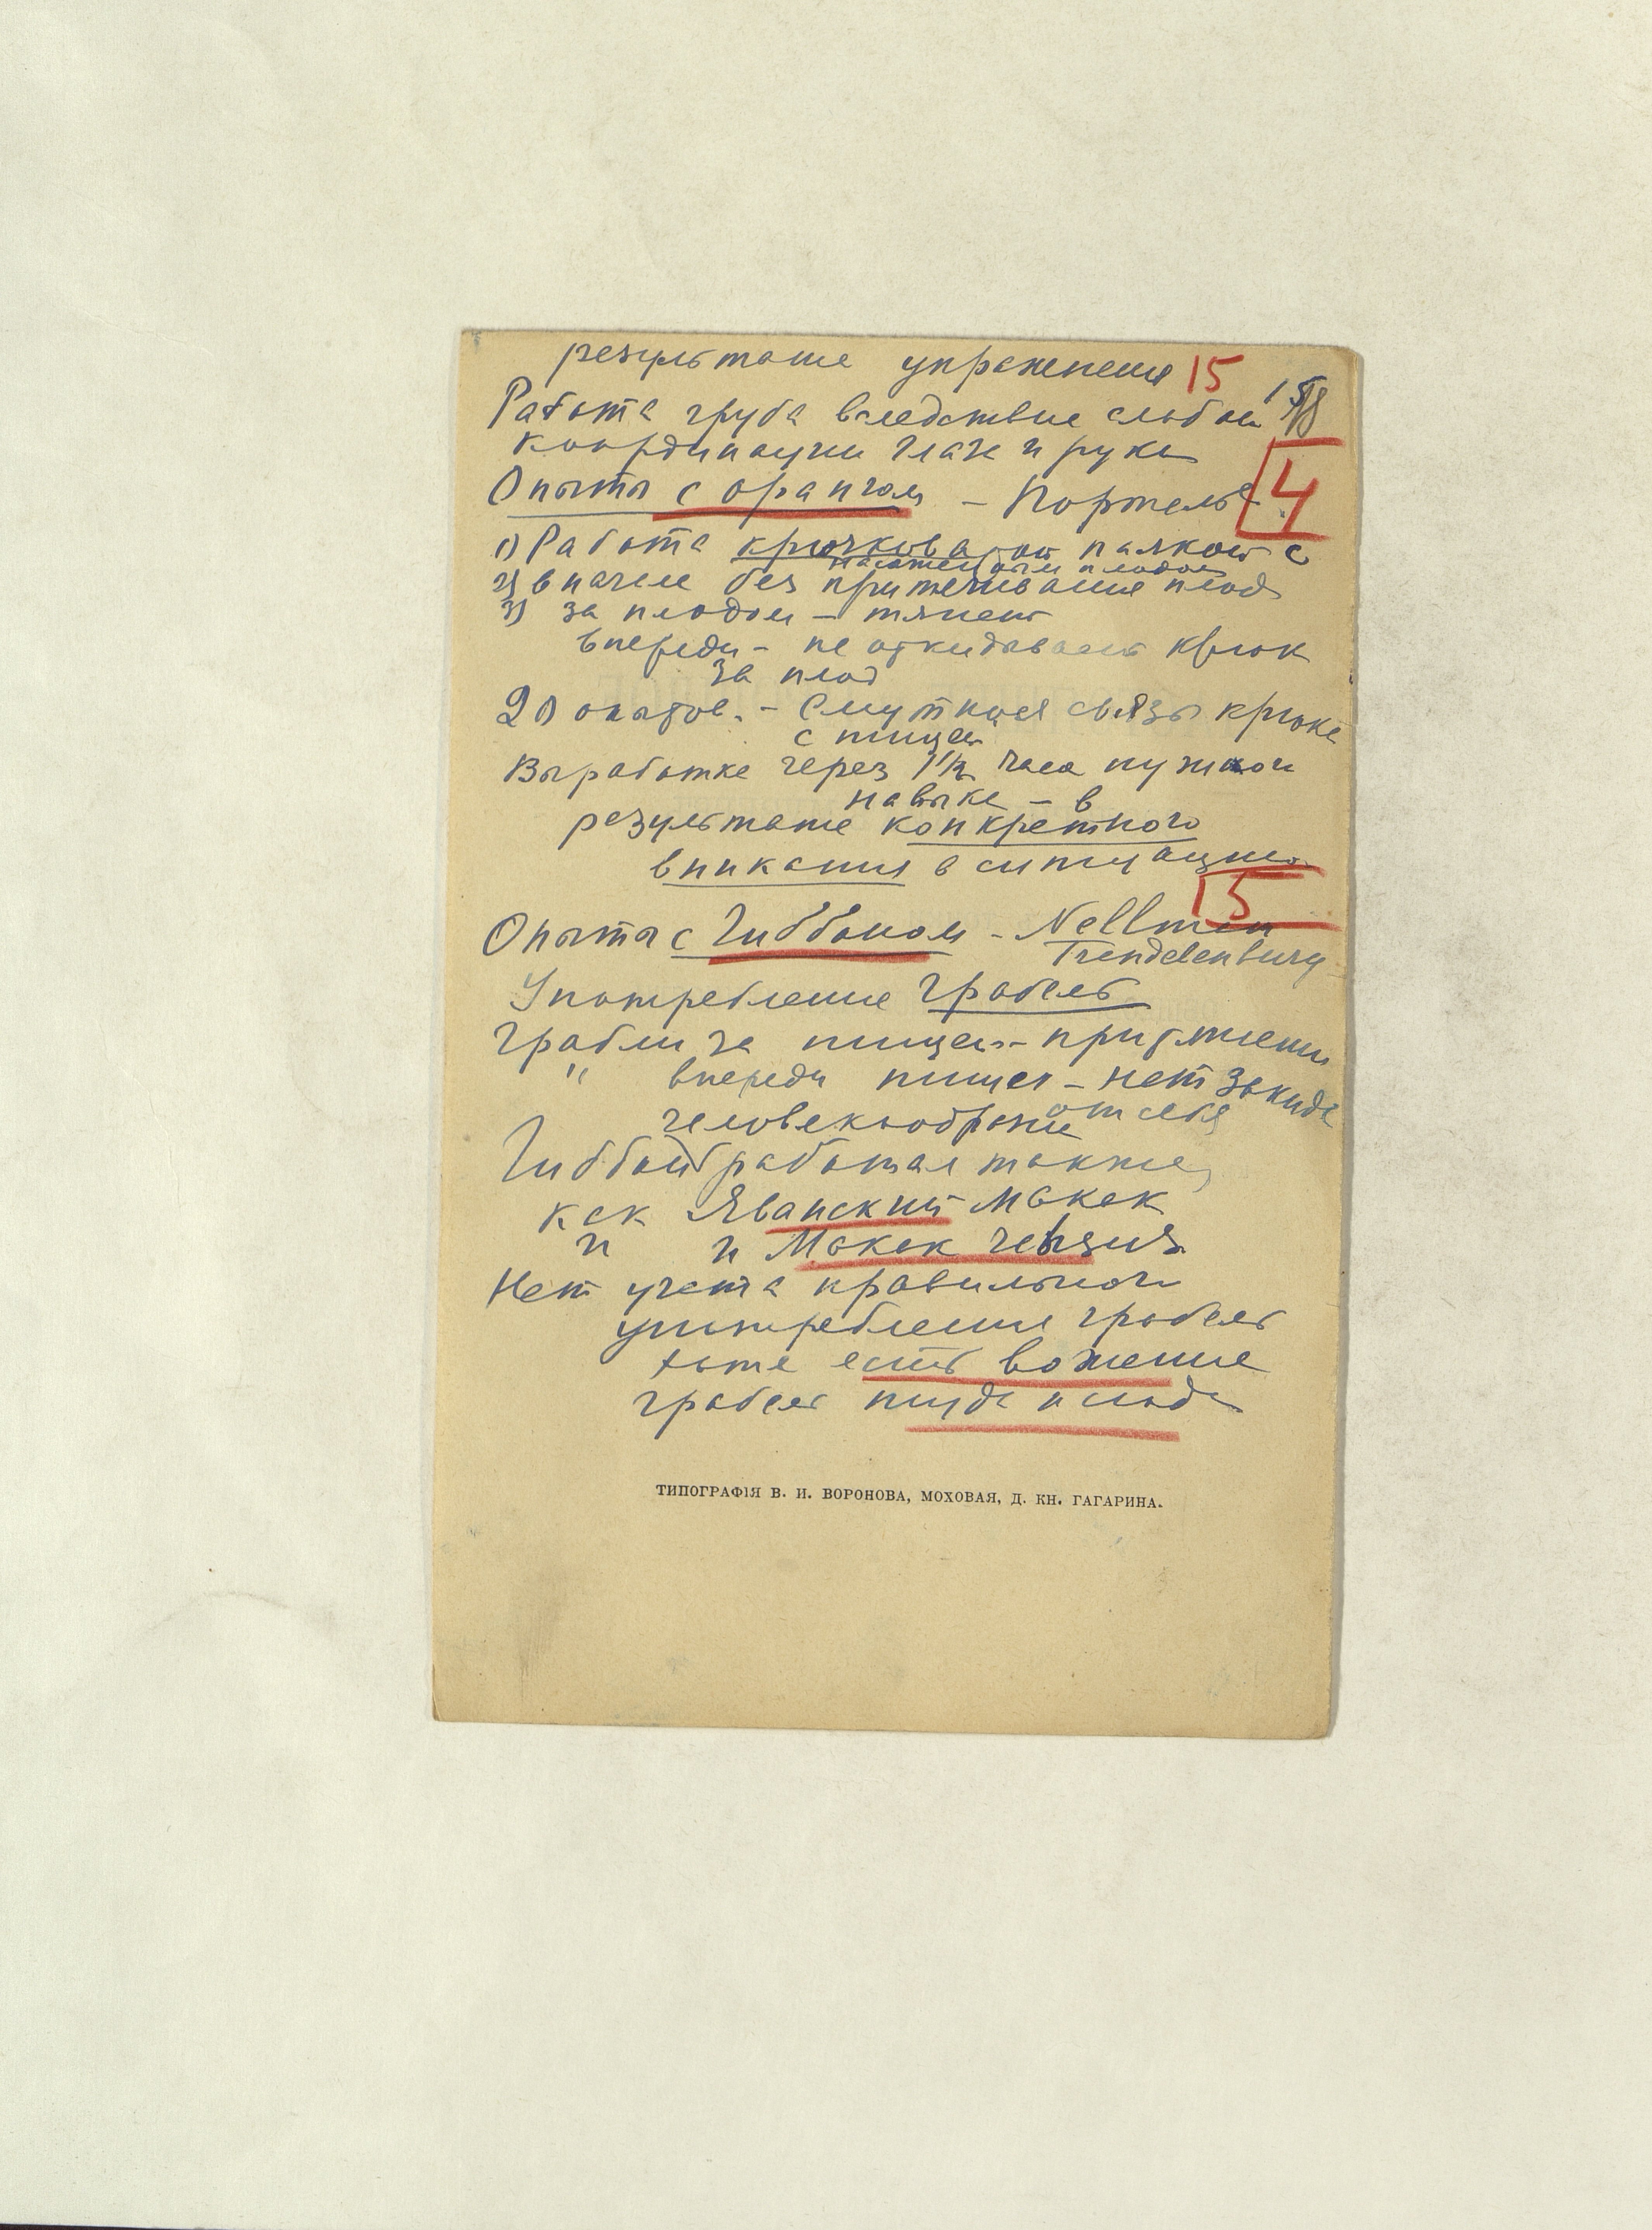 результате упражнения 15
Работа груба вследствие слабой
координации глаз и руки
Опыты с орангом – Портель 4
1) Работа крючковатой палкой с
насаженным плодом
2) вначале без примеривания плод
3) за плодом – тянет
впереди – не откидывает крюк
за плод
20 опытов. – Смутная связь крюка
с пищей
Выработка через 1½ часа нужного
навыка – в
результате конкретного
вникания в ситуацию
5
Опыты с Гиббоном – Nellman
Trendelenburg
Употребление грабель
Грабли за пищей – притяжении
" впереди пищи – нет закида
от себя
человекообразн
Гиббон работал также,
как Яванский макак
и и Макак
Нет учета правильного
употребления грабель
хотя есть вожение
грабель туда и сюда
ТИПОГРАФІЯ В. И. ВОРОНОВА, МОХОВАЯ, Д. КН. ГАГАРИНА.